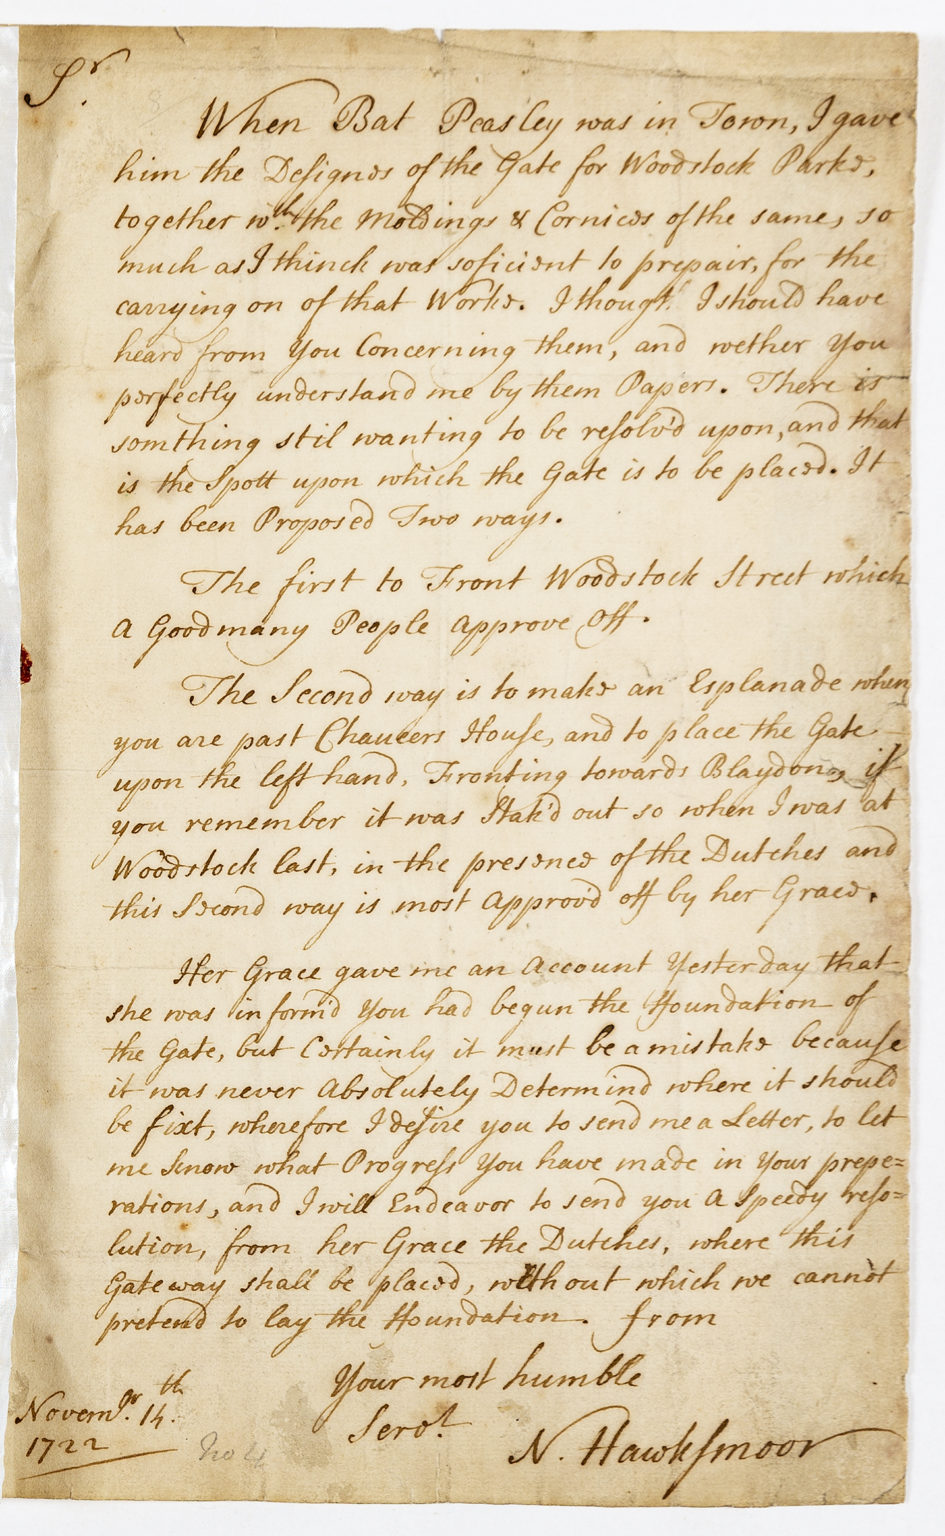 Sr.
When Bat Peasley was in Town, I gave
him the Designes of the Gate for Woodstock Parke,
together wth. the Moldings & Cornices of the same, so
much as I thinck was soficient to prepair, for the
carrying on of that Worke. I thought. I should have
heard from You Concerning them, and wether You
perfectly understand me by them Papers. There is
somthing stil wanting to be resolv'd upon, and that
is the Spott upon which the Gate is to be placed. It
has been Proposed Two ways.
The first to Front Woodstock Street which
A Good many People Approve Off.
The Second way is to make an Esplanade when
you are past Chaucers House, and to place the Gate
upon the left hand, Fronting towards Blaydon, if
you remember it was Stak'd out so when I was at
Woodstock last, in the presence of the Dutches and
this Second way is most Approv'd off by her Grace.
Her Grace gave me an Account Yesterday that
she was inform'd You had begun the ffoundation of
the Gate, but Certainly it must be a mistake because
it was never Absolutely Determind where it should
be fixt, wherefore I desire you to send me a Letter, to let
me know what Progress You have made in Your prepe=
rations, and I will Endeavor to send you A Speedy reso=
lution, from her Grace the Dutches, where this
Gate way shall be placed, without which we cannot
pretend to lay the ffoundation. from
Your most humble
Servt.
N. Hawksmoor
Novemr. 14th.
1722
No 4